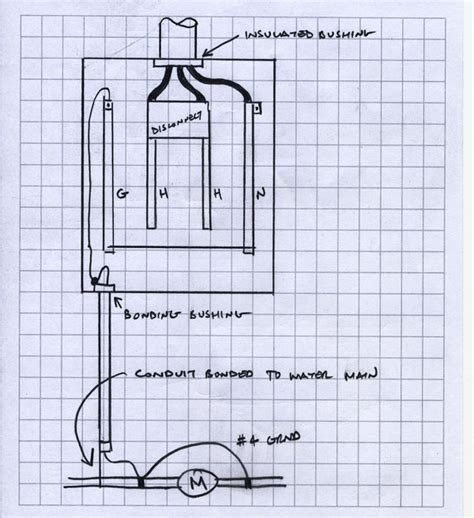 INSULATED BUSHING
DISCONNECT
G H H N
BONDING BUSHING
CONDUIT BONDED TO WATER MAIN
#4 GRND
M